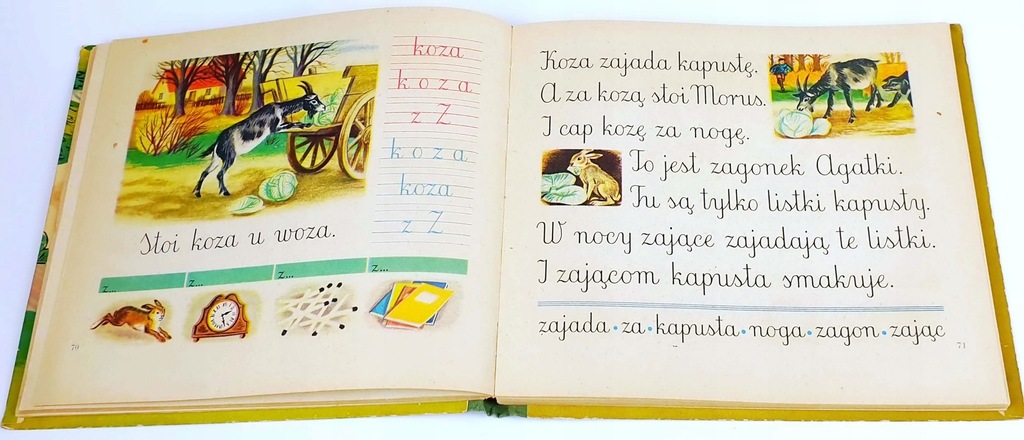 koza
koza
z Z
koza
koza
z Z
Stoi koza u woza.
z... z... z... z...
70
Koza zajada kapustę.
A za kozą stoi Morus.
I cap kozę za nogę.
To jest zagonek Agatki.
Tu są tylko listki kapusty.
W nocy zające zajadają te listki.
I zającom kapusta smakuje.
zajada • za • kapusta • noga • zagon • zając
71